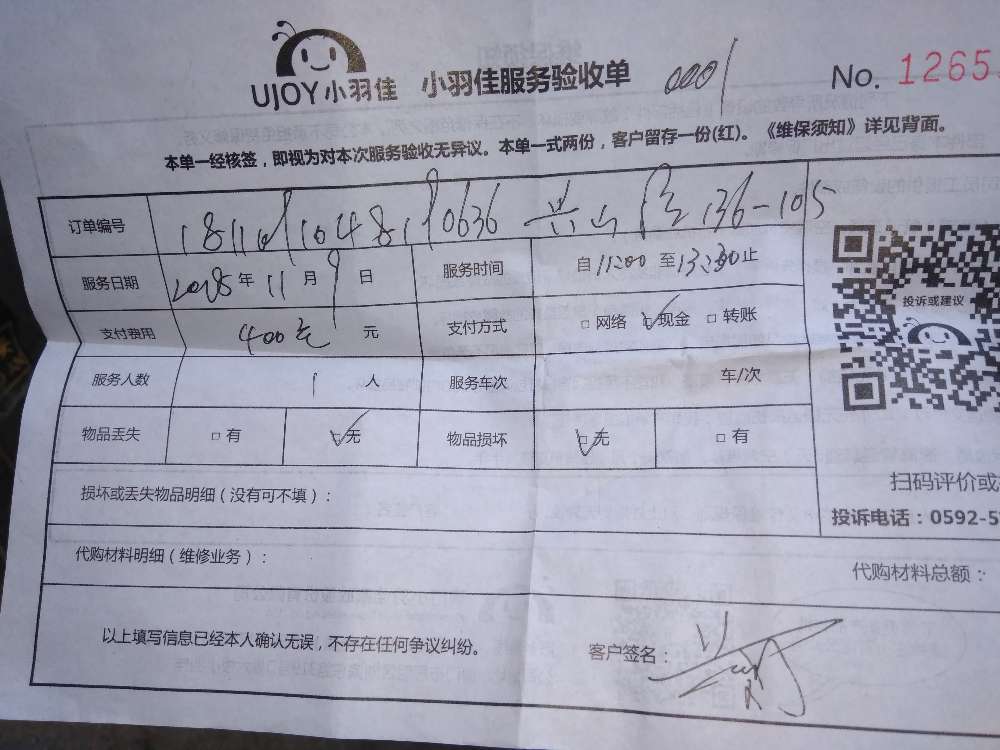 UJOY小羽佳 小羽佳服务验收单 0001 No. 1265
本单一经核签，即视为对本次服务验收无异议。本单一式两份，客户留存一份(红)。《维保须知》详见背面。
订单编号 136-105
服务日期 2018年 11月 9日 服务时间 自11:00至13:30止
支付费用 400元 元 支付方式 □网络 ☑现金 □转账
服务人数 1 人 服务车次 车/次
物品丢失 □有 ☑无 物品损坏 ☑无 □有
投诉或建议
扫码评价或
损坏或丢失物品明细（没有可不填）：
投诉电话：0592-5
代购材料明细（维修业务）：
代购材料总额：
以上填写信息已经本人确认无误，不存在任何争议纠纷。 客户签名：